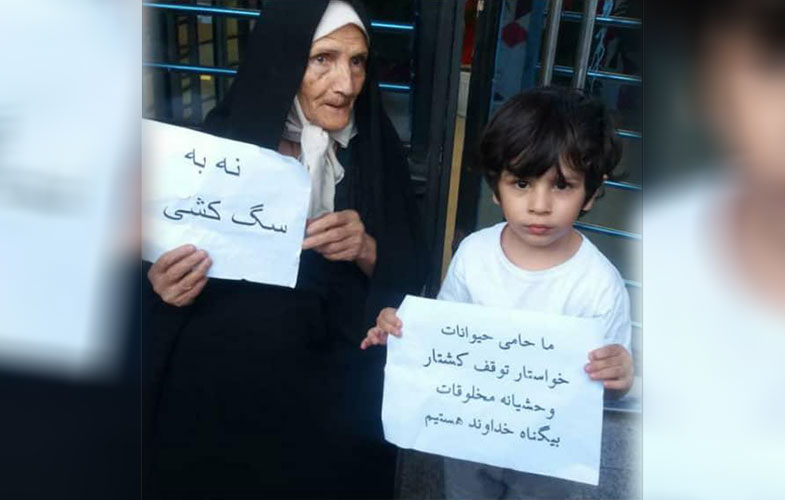 نه به
سگ کشی
ما حامی حیوانات
خواستار توقف کشتار
وحشیانه مخلوقات
بیگناه خداوند هستیم